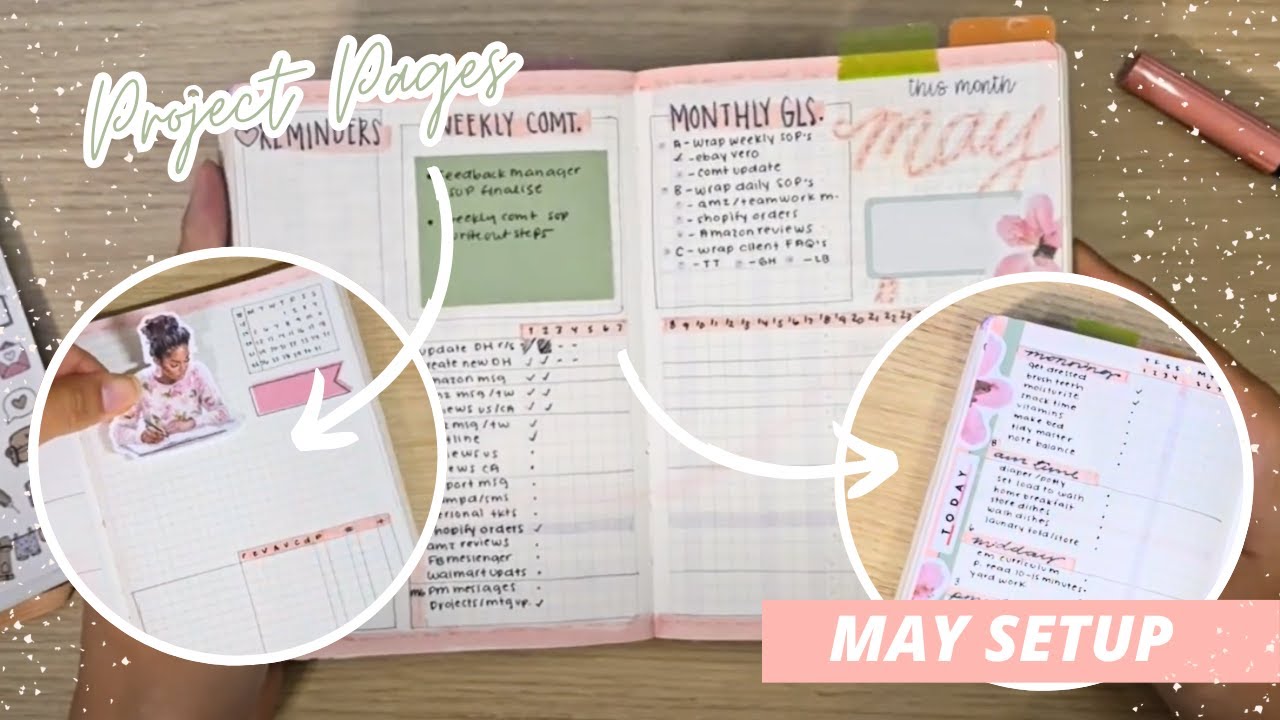 Project Pages
REMINDERS
WEEKLY COMT.
feedback manager
SOP finalise
weekly comt sop
write out steps
MONTHLY GLS.
A - wrap weekly SOP's
- ebay vero
- comt update
B - wrap daily SOP's
- amz/teamwork m.
- shopify orders
- Amazon reviews
C - wrap client FAQ's
- TT - GH - LB
this month
may
1 2 3 4 5 6 7
8 9 10 11 12 13 14 15 16 17 18 19 20 21 22 23
update DH r/s
create new DH
amazon msg
msg/tw
news us/ca
msg/tw
views us
views CA
port msg
shopify orders
amz reviews
FB messenger
walmart updts
pm messages
projects/mtg up.
TODAY
morning
get dressed
brush teeth
moisturize
snack time
vitamins
make bed
tidy master
note balance
am time
diaper/potty
set load to wash
home breakfast
store dishes
wash dishes
laundry fold/store
midday
em curriculum
p. read 10-15 minutes
yard work
MAY SETUP